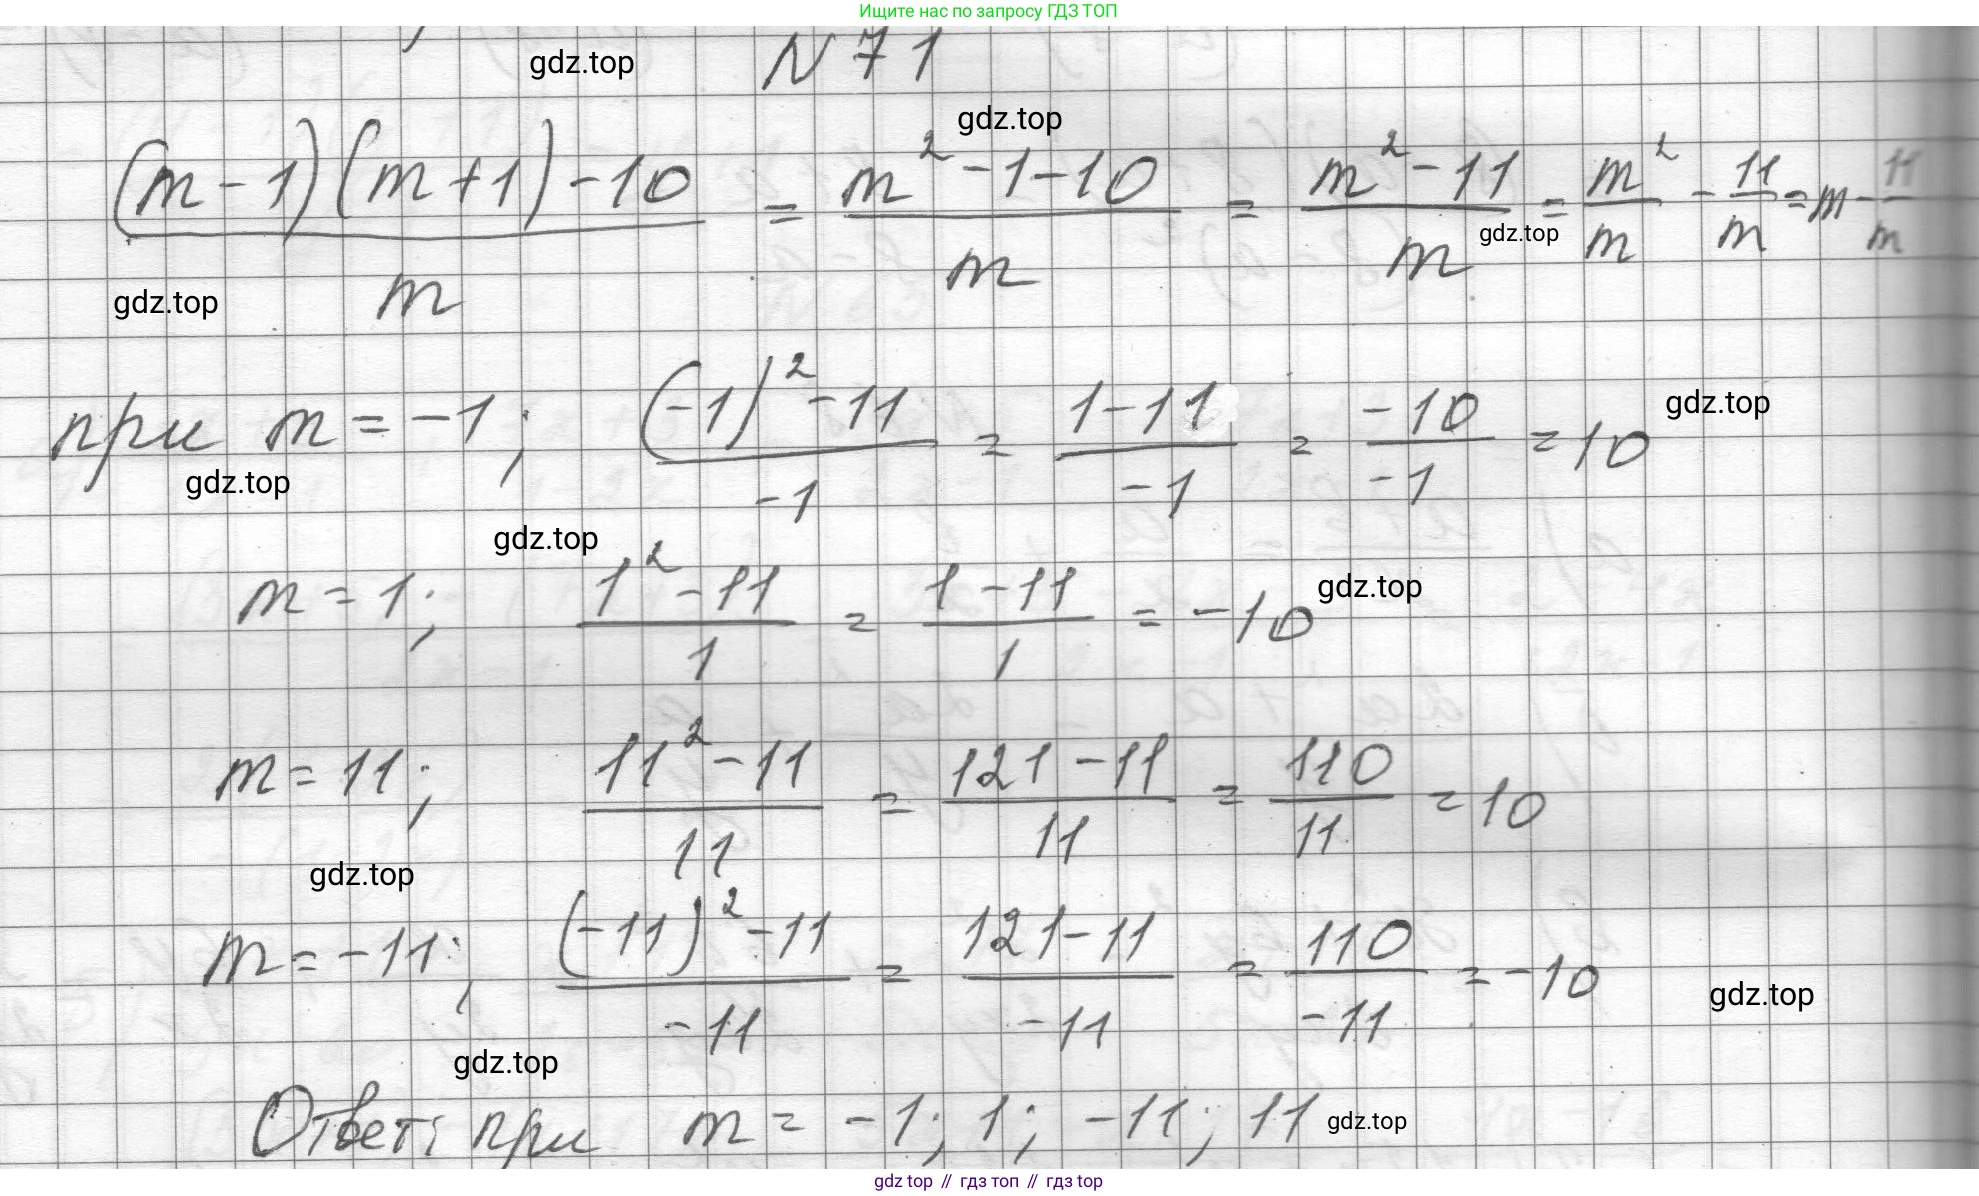 Ищите нас по запросу ГДЗ ТОП
N 71
gdz.top
gdz.top
((m-1)(m+1)-10)/m = (m²-1-10)/m = (m²-11)/m = m²/m - 11/m = m - 11/m
gdz.top
gdz.top
при m = -1; ((-1)²-11)/-1 = (1-11)/-1 = -10/-1 = 10
gdz.top
gdz.top
gdz.top
m = 1; (1²-11)/1 = (1-11)/1 = -10
gdz.top
m = 11; (11²-11)/11 = (121-11)/11 = 110/11 = 10
gdz.top
m = -11; ((-11)²-11)/-11 = (121-11)/-11 = 110/-11 = -10
gdz.top
gdz.top
Ответ: при m = -1; 1; -11; 11
gdz.top
gdz top // гдз топ // гдз top